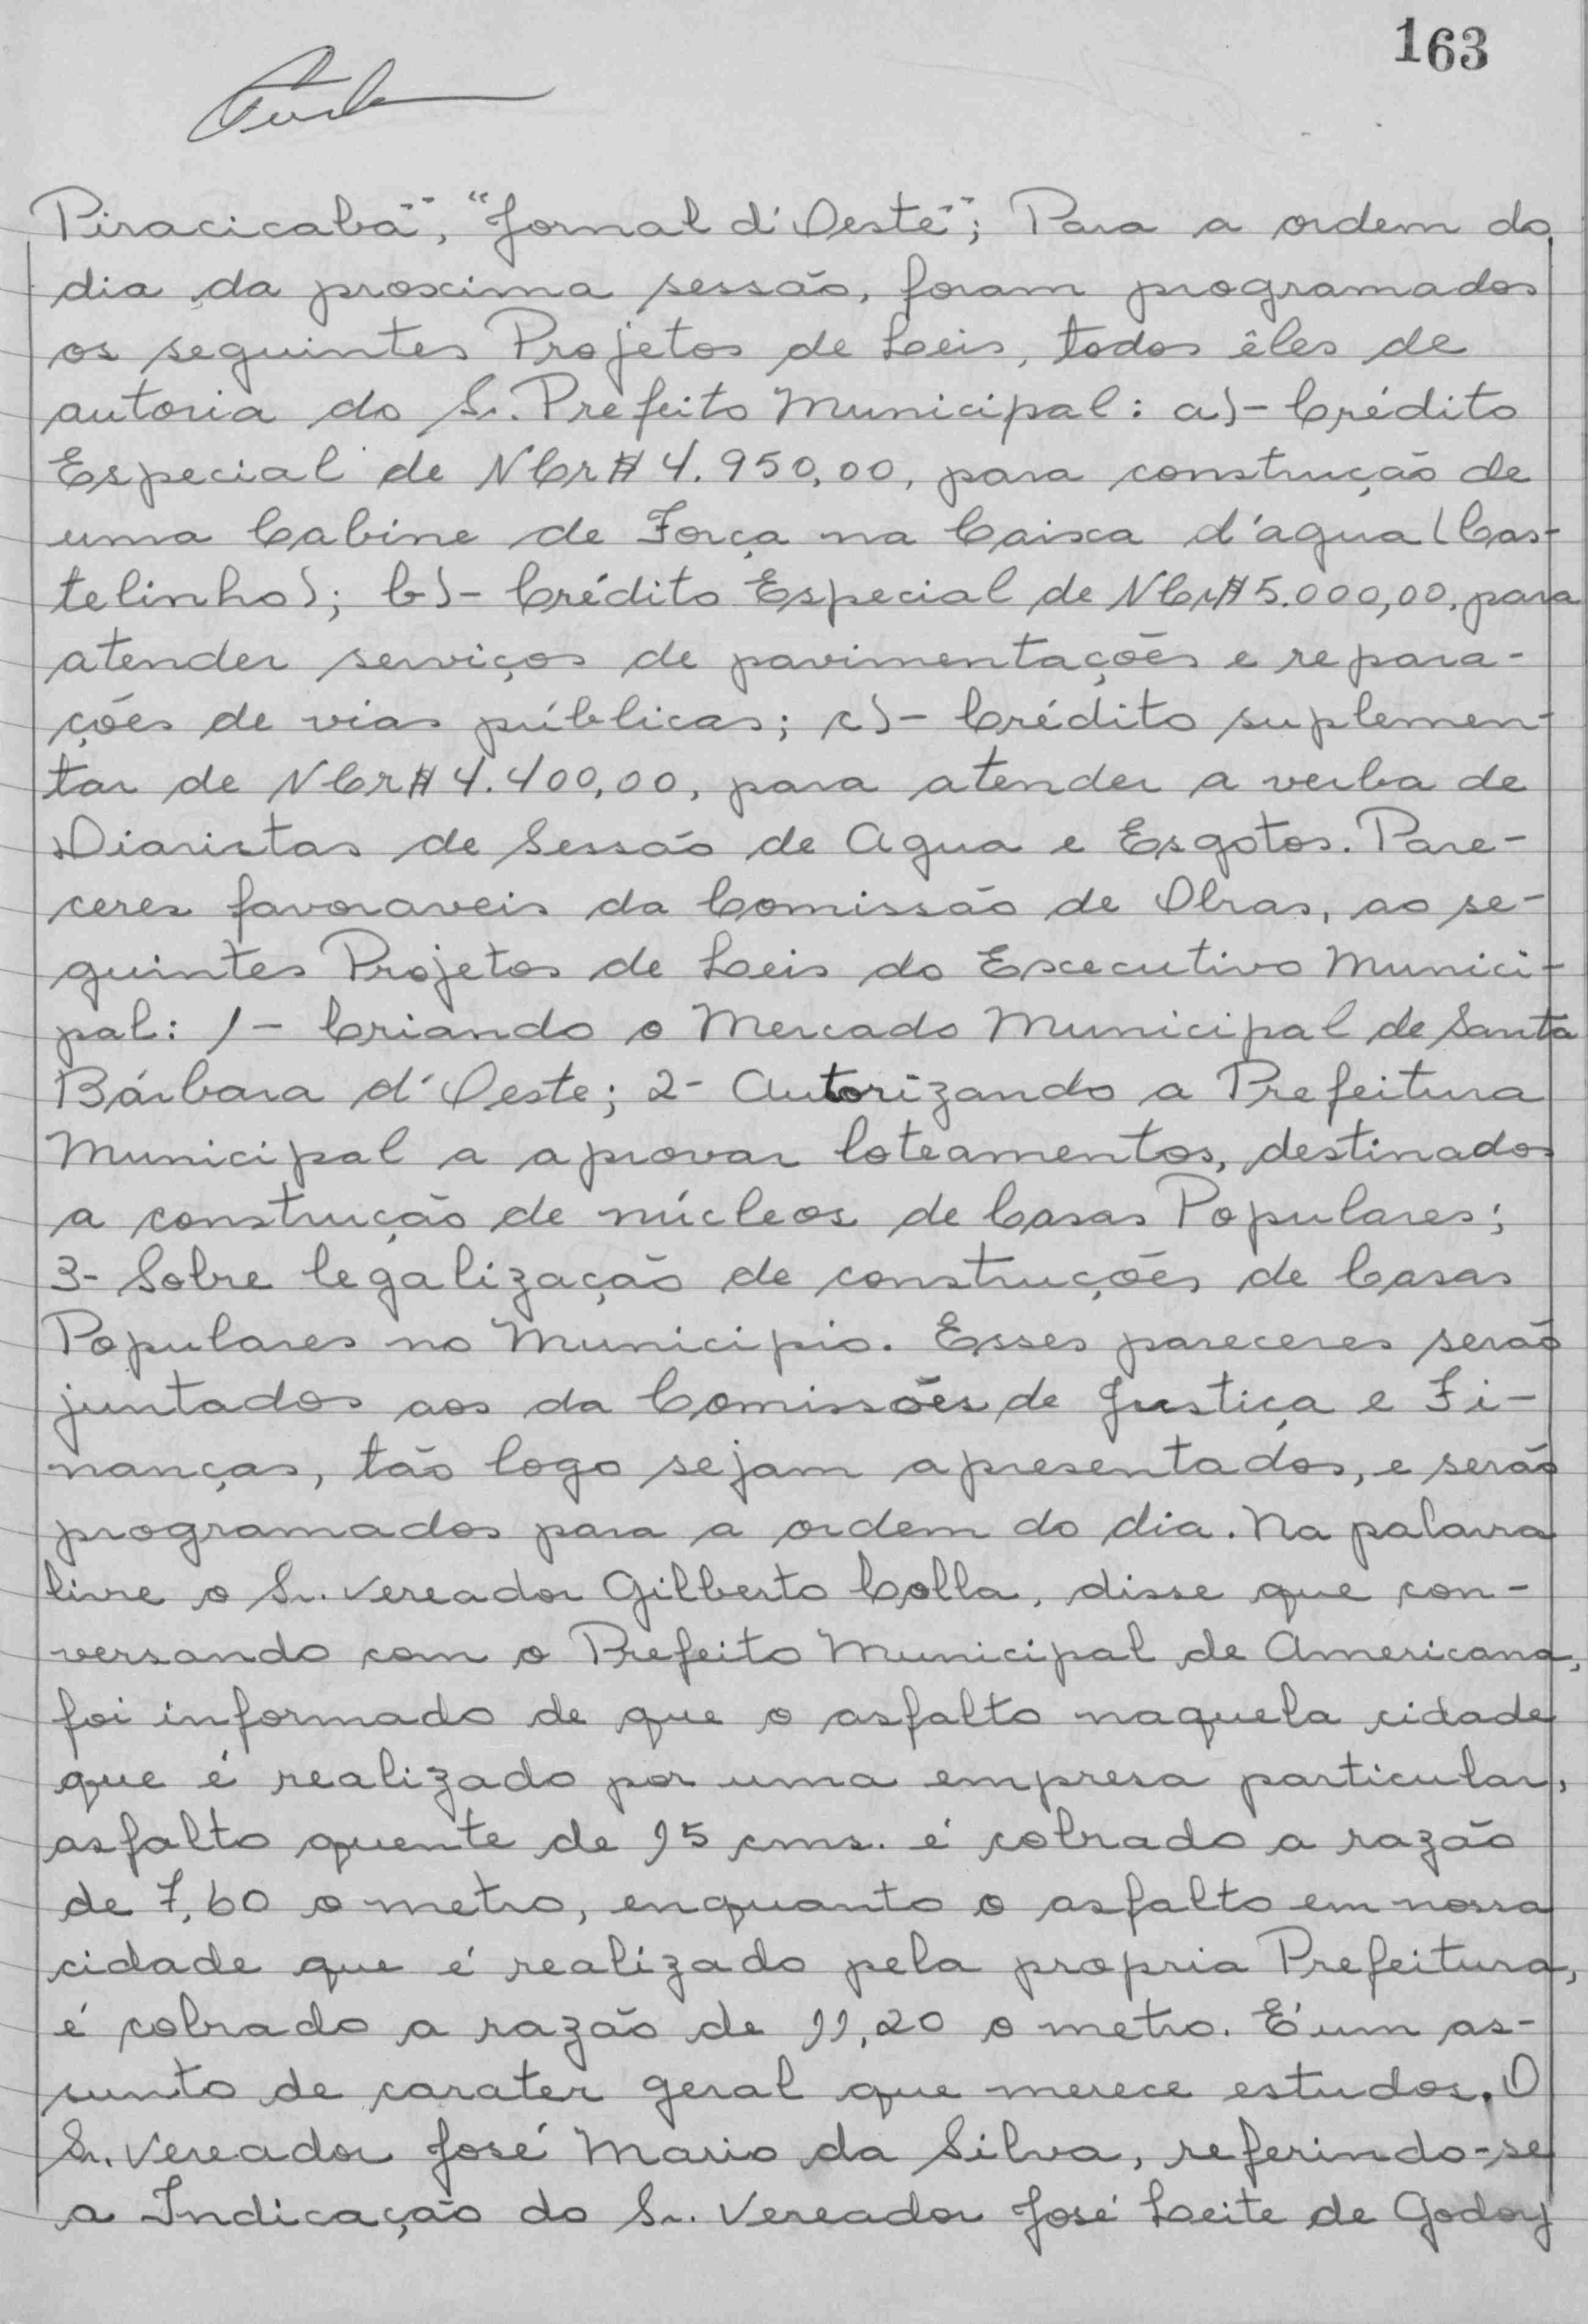 163
Piracicaba", "Jornal d'Oeste"; Para a ordem do
dia da proxima sessão, foram programados
os seguintes Projetos de Leis, todos êles de
autoria do Sr. Prefeito Municipal: a)- Crédito
Especial de NCr$ 4.950,00, para construção de
uma Cabine de Força na Caixa d'água (Cas-
telinho); b)- Crédito Especial de NCr$ 5.000,00, para
atender serviços de pavimentações e repara-
ções de vias públicas; c)- Crédito suplemen-
tar de NCr$ 4.400,00, para atender a verba de
Diaristas de Sessão de Agua e Esgotos. Pare-
ceres favoraveis da Comissão de Obras, ao se-
guintes Projetos de Leis do Executivo Munici-
pal: 1- Criando o Mercado Municipal de Santa
Bárbara d'Oeste; 2- Autorizando a Prefeitura
Municipal a aprovar loteamentos, destinados
a construção de núcleos de Casas Populares;
3- Sobre legalização de construções de Casas
Populares no Municipio. Esses pareceres serão
juntados aos da Comissões de Justiça e Fi-
nanças, tão logo sejam apresentados, e serão
programados para a ordem do dia. Na palavra
livre o Sr. Vereador Gilberto Colla, disse que con-
versando com o Prefeito Municipal de Americana,
foi informado de que o asfalto naquela cidade
que é realizado por uma empresa particular,
asfalto quente de 15 cms. é cobrado a razão
de 7,60 o metro, enquanto o asfalto em nossa
cidade que é realizado pela propria Prefeitura,
é cobrado a razão de 11,20 o metro. É um as-
sunto de carater geral que merece estudos. O
Sr. Vereador José Mario da Silva, referindo-se
a Indicação do Sr. Vereador José Leite de Godoy